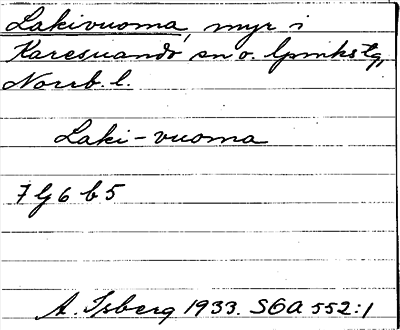 Lakivuoma, myr i
Karesuando sn o. lpmkstg,
Norrb. l.
Laki-vuoma
7 G 6 b 5
A. Isberg 1933. SOA 552:1